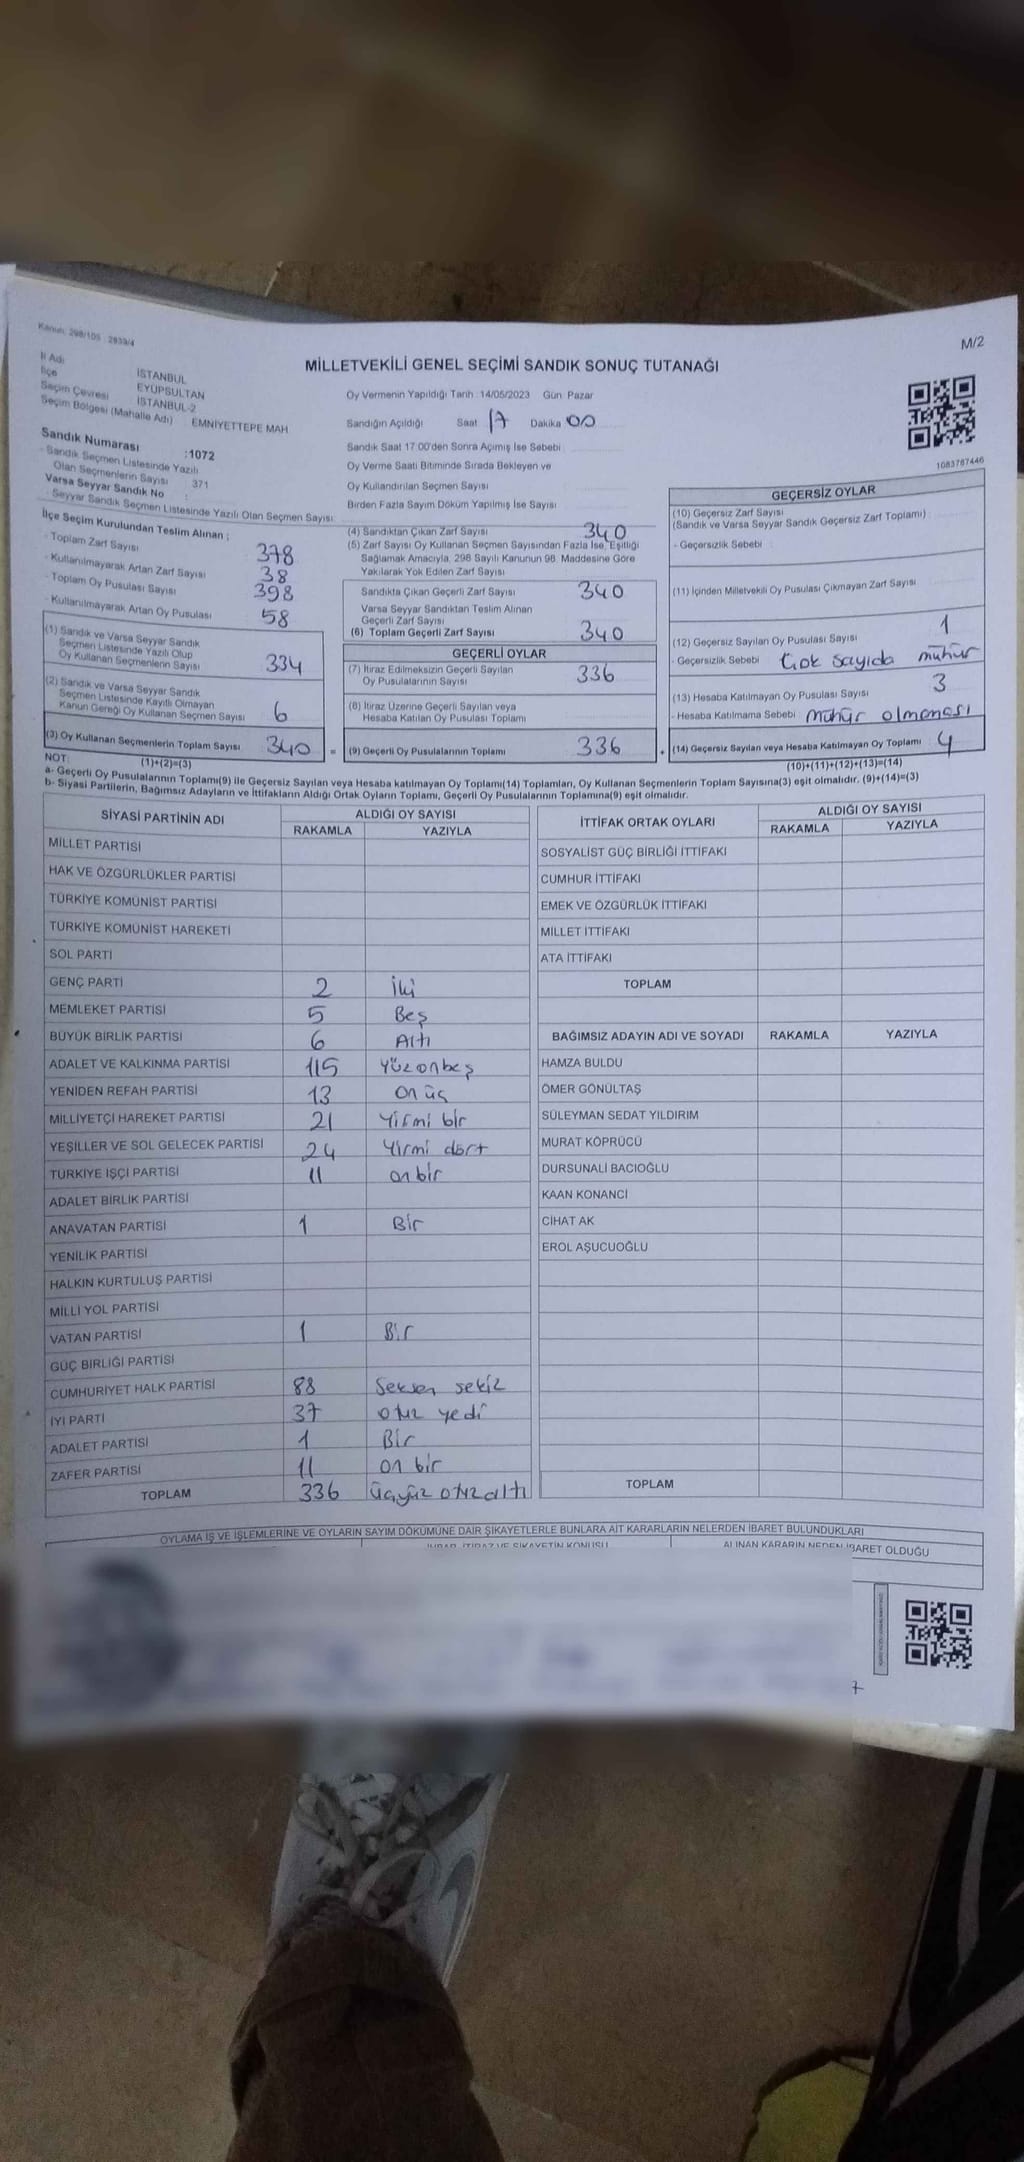 Kanun: 298/105 2839/4
M/2
MİLLETVEKİLİ GENEL SEÇİMİ SANDIK SONUÇ TUTANAĞI
İl Adı İSTANBUL
İlçe EYÜPSULTAN
Seçim Çevresi İSTANBUL-2
Seçim Bölgesi (Mahalle Adı) EMNİYETTEPE MAH.
Sandık Numarası :1072
- Sandık Seçmen Listesinde Yazılı
Olan Seçmenlerin Sayısı : 371
Varsa Seyyar Sandık No :
- Seyyar Sandık Seçmen Listesinde Yazılı Olan Seçmen Sayısı:
Oy Vermenin Yapıldığı Tarih : 14/05/2023 Gün Pazar
Sandığın Açıldığı Saat 17 Dakika 00
Sandık Saat 17:00'den Sonra Açımış İse Sebebi
Oy Verme Saati Bitiminde Sırada Bekleyen ve
Oy Kullandırılan Seçmen Sayısı
Birden Fazla Sayım Döküm Yapılmış İse Sayısı
1083787446
İlçe Seçim Kurulundan Teslim Alınan ;
- Toplam Zarf Sayısı 378
- Kullanılmayarak Artan Zarf Sayısı 38
- Toplam Oy Pusulası Sayısı 398
- Kullanılmayarak Artan Oy Pusulası 58
(1) Sandık ve Varsa Seyyar Sandık
Seçmen Listesinde Yazılı Olup
Oy Kullanan Seçmenlerin Sayısı 334
(2) Sandık ve Varsa Seyyar Sandık
Seçmen Listesinde Kayıtlı Olmayan
Kanun Gereği Oy Kullanan Seçmen Sayısı 6
(3) Oy Kullanan Seçmenlerin Toplam Sayısı 340 =
(1)+(2)=(3)
(4) Sandıktan Çıkan Zarf Sayısı 340
(5) Zarf Sayısı Oy Kullanan Seçmen Sayısından Fazla İse, Eşitliği
Sağlamak Amacıyla, 298 Sayılı Kanunun 98. Maddesine Göre
Yakılarak Yok Edilen Zarf Sayısı
Sandıkta Çıkan Geçerli Zarf Sayısı 340
Varsa Seyyar Sandıktan Teslim Alınan
Geçerli Zarf Sayısı
(6) Toplam Geçerli Zarf Sayısı 340
GEÇERLİ OYLAR
(7) İtiraz Edilmeksizin Geçerli Sayılan
Oy Pusulalarının Sayısı 336
(8) İtiraz Üzerine Geçerli Sayılan veya
Hesaba Katılan Oy Pusulası Toplamı
(9) Geçerli Oy Pusulalarının Toplamı 336 +
GEÇERSİZ OYLAR
(10) Geçersiz Zarf Sayısı
(Sandık ve Varsa Seyyar Sandık Geçersiz Zarf Toplamı) :
- Geçersizlik Sebebi :
(11) İçinden Milletvekili Oy Pusulası Çıkmayan Zarf Sayısı
(12) Geçersiz Sayılan Oy Pusulası Sayısı 1
- Geçersizlik Sebebi Çok sayıda mühür
(13) Hesaba Katılmayan Oy Pusulası Sayısı 3
- Hesaba Katılmama Sebebi mühür olmaması
(14) Geçersiz Sayılan veya Hesaba Katılmayan Oy Toplamı 4
(10)+(11)+(12)+(13)=(14)
NOT:
a- Geçerli Oy Pusulalarının Toplamı(9) ile Geçersiz Sayılan veya Hesaba katılmayan Oy Toplamı(14) Toplamları, Oy Kullanan Seçmenlerin Toplam Sayısına(3) eşit olmalıdır. (9)+(14)=(3)
b- Siyasi Partilerin, Bağımsız Adayların ve İttifakların Aldığı Ortak Oyların Toplamı, Geçerli Oy Pusulalarının Toplamına(9) eşit olmalıdır.
SİYASİ PARTİNİN ADI ALDIĞI OY SAYISI
RAKAMLA YAZIYLA
MİLLET PARTİSİ
HAK VE ÖZGÜRLÜKLER PARTİSİ
TÜRKİYE KOMÜNİST PARTİSİ
TÜRKİYE KOMÜNİST HAREKETİ
SOL PARTİ
GENÇ PARTİ 2 İki
MEMLEKET PARTİSİ 5 Beş
BÜYÜK BİRLİK PARTİSİ 6 Altı
ADALET VE KALKINMA PARTİSİ 115 Yüzonbeş
YENİDEN REFAH PARTİSİ 13 on üç
MİLLİYETÇİ HAREKET PARTİSİ 21 Yirmi bir
YEŞİLLER VE SOL GELECEK PARTİSİ 24 Yirmi dört
TÜRKİYE İŞÇİ PARTİSİ 11 on bir
ADALET BİRLİK PARTİSİ
ANAVATAN PARTİSİ 1 Bir
YENİLİK PARTİSİ
HALKIN KURTULUŞ PARTİSİ
MİLLİ YOL PARTİSİ
VATAN PARTİSİ 1 Bir
GÜÇ BİRLİĞİ PARTİSİ
CUMHURİYET HALK PARTİSİ 88 Seksen sekiz
İYİ PARTİ 37 otuz yedi
ADALET PARTİSİ 1 Bir
ZAFER PARTİSİ 11 on bir
TOPLAM 336 üçyüz otuzaltı
İTTİFAK ORTAK OYLARI ALDIĞI OY SAYISI
RAKAMLA YAZIYLA
SOSYALİST GÜÇ BİRLİĞİ İTTİFAKI
CUMHUR İTTİFAKI
EMEK VE ÖZGÜRLÜK İTTİFAKI
MİLLET İTTİFAKI
ATA İTTİFAKI
TOPLAM
BAĞIMSIZ ADAYIN ADI VE SOYADI RAKAMLA YAZIYLA
HAMZA BULDU
ÖMER GÖNÜLTAŞ
SÜLEYMAN SEDAT YILDIRIM
MURAT KÖPRÜCÜ
DURSUNALİ BACIOĞLU
KAAN KONANCİ
CİHAT AK
EROL AŞUCUOĞLU
TOPLAM
OYLAMA İŞ VE İŞLEMLERİNE VE OYLARIN SAYIM DÖKÜMÜNE DAİR ŞİKAYETLERLE BUNLARA AİT KARARLARIN NELERDEN İBARET BULUNDUKLARI
ALINAN KARARIN NEDEN İBARET OLDUĞU